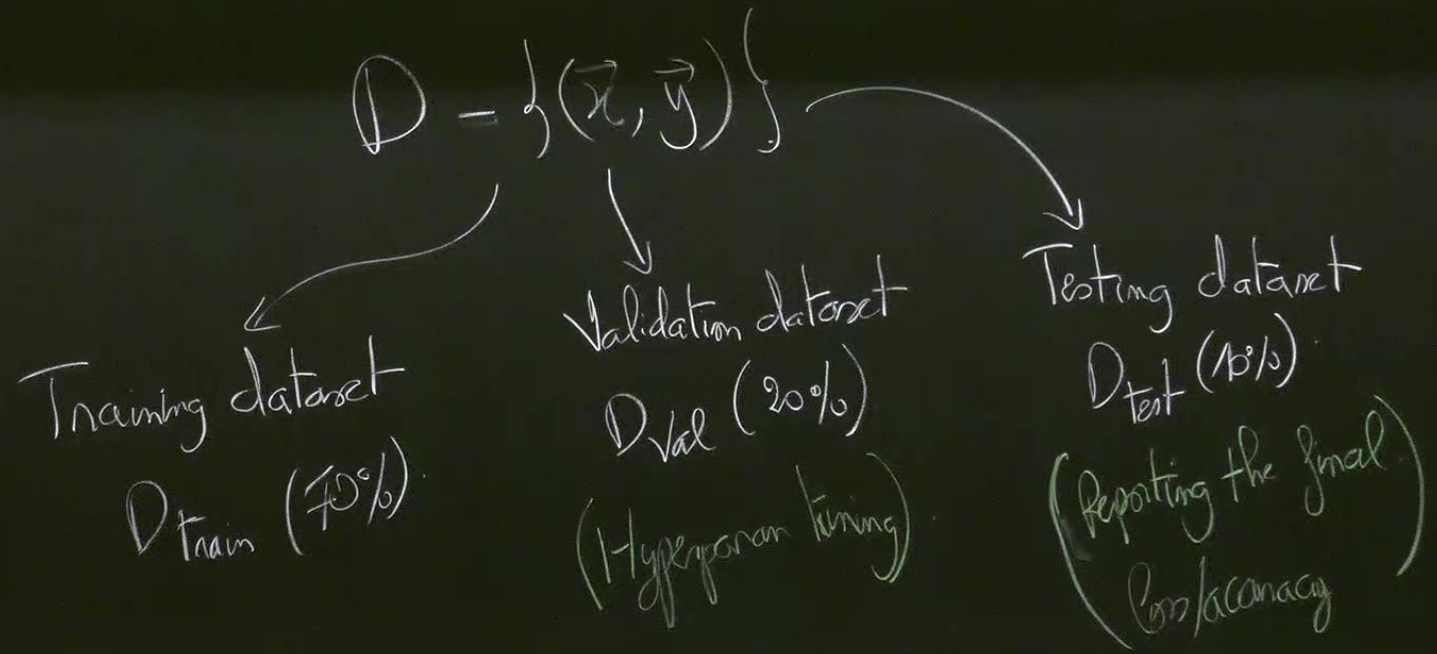 D = {(x⃗, y⃗)}
Training dataset
D train (70%).
Validation dataset
D val (20%)
(Hyperparam tuning).
Testing dataset
D test (10%).
(Reporting the final
loss/accuracy)